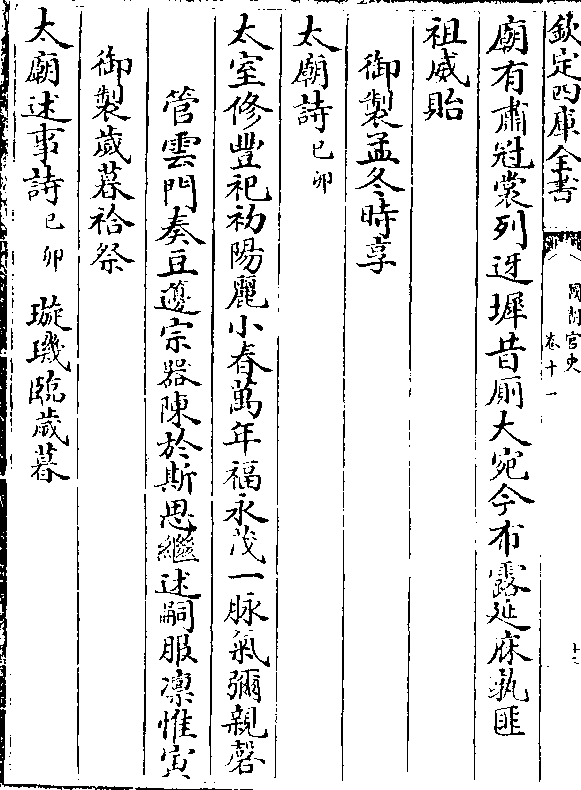 欽定四庫全書
國朝宮史
卷十一
廟有肅冠裳列迓墀昔厠大宛今布露延庥孰匪
祖威貽
御製孟冬時享
太廟詩己卯
太室修豐祀初陽麗小春萬年福永茂一脉氣彌親磬
管雲門奏豆籩宗器陳於斯思繼述嗣服凛惟寅
御製歲暮祫祭
太廟述事詩己卯 璇璣臨歲暮